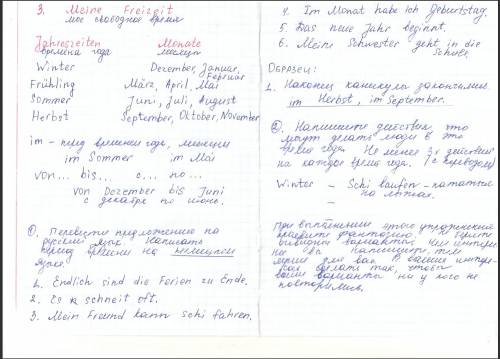 3. Meine Freizeit
мое свободное время
Jahreszeiten Monate
времена года месяцы
Winter Dezember, Januar, Februar
Frühling März, April, Mai
Sommer Juni, Juli, August
Herbst September, Oktober, November
im - перед временем года, месяцем
im Sommer im Mai
von... bis... с... по...
von Dezember bis Juni
с декабря по июнь.
①. Перевести предложение на
русский язык. Написать
период времени на немецком
языке.
1. Endlich sind die Ferien zu Ende.
2. Es schneit oft.
3. Mein Freund kann schi fahren.
4. Im Monat habe ich Geburtstag.
5. Das neue Jahr beginnt.
6. Meine Schwester geht in die
Schule.
Образец:
1. Наконец каникулы закончились.
im Herbst, im September.
②. Напишите действия, что
могут делать люди в это
время года. Не менее 3х действий
на каждое время года. (с переводом)
Winter - Schi laufen - кататься
на лыжах.
-
-
При выполнении этого упражнения
проявите фантазию.
вариантов. Чем интерес
нее вы напишите, тем
лучше для вас. В ваших интере-
сах сделать так, чтобы
ваши варианты ни у кого не
повторились.